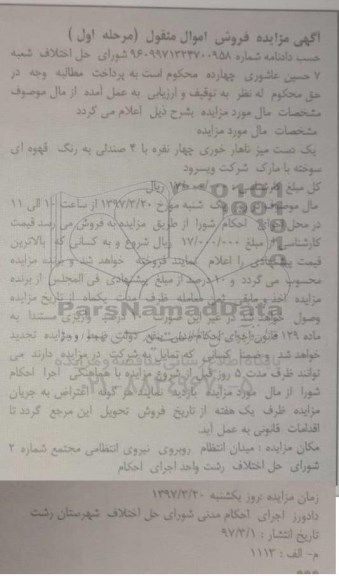 آگهی مزایده فروش اموال منقول (مرحله اول)
حسب دادنامه شماره ۹۶۰۹۹۷۱۳۲۳۷۰۰۹۵۸ شورای حل اختلاف شعبه
۷ حسین عاشوری چهارده محکوم است به پرداخت مطالبه وجه در
حق محکوم له نظر به توقیف و ارزیابی به عمل آمده از مال موصوف
مشخصات مال مورد مزایده بشرح ذیل اعلام می گردد
مشخصات مال مورد مزایده
یک دست میز ناهار خوری چهار نفره با ۴ صندلی به رنگ قهوه ای
سوخته با مارک شرکت ویسرود
کل مبلغ ریال
مال شنبه مورخ ۱۳۹۷/۳/۲۰ از ساعت ۱۰ الی ۱۱
در محل احکام شورا از طریق مزایده به فروش می رسد قیمت
کارشناسی از مبلغ ۱۷/۰۰۰/۰۰۰ ریال شروع و به کسانی که بالاترین
قیمت پیشنهادی را اعلام نمایند فروخته خواهد شد و برنده مزایده
محسوب می گردد و ۱۰ درصد از مبلغ پیشنهادی فی المجلس از برنده
مزایده اخذ و مابقی ظرف مدت یکماه از تاریخ مزایده
وصول خواهد شد در غیر این صورت واریزی مستندا به
ماده ۱۲۹ قانون اجرای احکام مدنی به نفع دولت ضبط و مزایده تجدید
خواهد شد و ضمنا کسانی که تمایل به شرکت در مزایده دارند می
توانند ظرف مدت ۵ روز قبل از شروع مزایده با هماهنگی اجرا احکام
شورا از مال مورد مزایده بازدید نمایند هر گونه اعتراض به جریان
مزایده ظرف یک هفته از تاریخ فروش تحویل این مرجع گردد تا
اقدامات قانونی به عمل آید.
مکان مزایده : میدان انتظام روبروی نیروی انتظامی مجتمع شماره ۲
شورای حل اختلاف رشت واحد اجرای احکام
زمان مزایده :روز یکشنبه ۱۳۹۷/۳/۲۰
دادورز اجرای احکام مدنی شورای حل اختلاف شهرستان رشت
تاریخ انتشار : ۹۷/۳/۱
م- الف : ۱۱۱۳
ParsNamadData